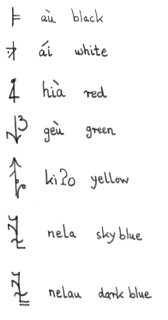 aù black
ái white
hìà red
gèù green
kiʔo yellow
nela sky blue
nelau dark blue